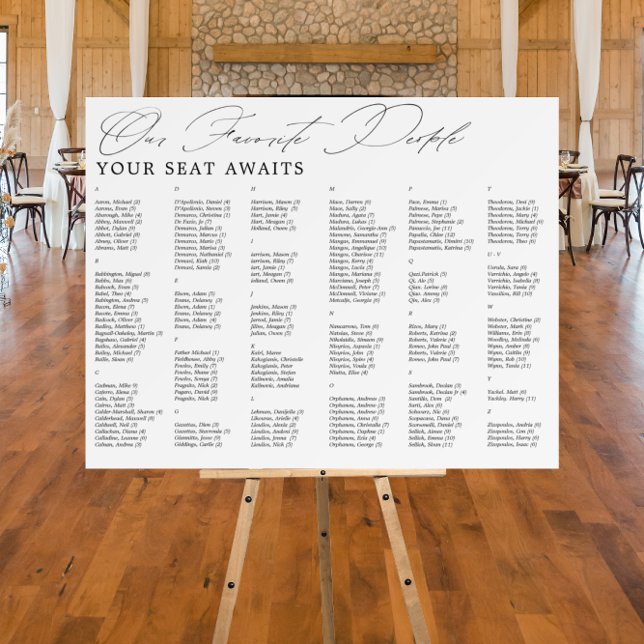 Our Favorite People
YOUR SEAT AWAITS
A
Aaron, Michael (2)
Aarons, Evan (5)
Abarough, Mike (4)
Abbey, Maxwell (2)
Abbot, Dylan (9)
Abbott, Gabriel (8)
Abney, Oliver (1)
Abrams, Matt (3)
B
Babbington, Miguel (8)
Babbs, Max (6)
Babcock, Evan (5)
Babel, Theo (4)
Babington, Andrea (5)
Bacon, Elena (7)
Bacote, Emma (3)
Badcock, Oliver (2)
Badley, Matthew (1)
Bagnall-Oakeley, Martin (3)
Bagshaw, Gabriel (4)
Bailes, Alexander (5)
Bailey, Michael (7)
Bailie, Sloan (6)
C
Cadman, Mike (9)
Cafiero, Elena (3)
Cain, Dylan (5)
Cairns, Matt (3)
Calder-Marshall, Sharon (4)
Calderhead, Maxwell (8)
Caldwell, Neil (3)
Callachan, Diana (4)
Callodine, Leanne (6)
Calnan, Andrea (3)
D
D'Apollonio, Daniel (4)
D'Apollonio, Steven (3)
Demarco, Christina (1)
De Fazio, Je (7)
Demarco, Julian (3)
Demarco, Marcus (1)
Demarco, Mario (5)
Demarco, Marisa (3)
Demarco, Nathaniel (5)
Demasi, Katia (6)
Demasi, Samia (2)
E
Elsom, Adam (5)
Evans, Delaney (3)
Elsom, Adam (1)
Evans, Delaney (2)
Elsom, Adam (4)
Evans, Delaney (5)
F
Father Michael (1)
Fieldhouse, Abby (3)
Fowles, Emily (7)
Fowles, Emma (5)
Fowles, Shana (6)
Fowles, Sonya (7)
Fragnito, Nick (2)
Fragnito, Nick (2)
G
Gazettas, Dion (3)
Gazettas, Stavroula (5)
Giannitto, Jesse (9)
Giddings, Garlie (2)
H
Harrison, Mason (3)
Harrison, Riley (5)
Hart, Jamie (4)
Hart, Meagan (1)
Holland, Owen (5)
I
iarrison, Mason (3)
iarrison, Riley (5)
iart, Jamie (7)
iart, Meagan (7)
iolland, Owen (6)
J
Jenkins, Mason (3)
Jenkins, Riley (5)
Jarrod, Jamie (7)
Jiline, Meagan (5)
Juliam, Owen (5)
K
Kairi, Maree
Kakagianis, Christelle
Kakogianis, Peter
Kakogianis, Stefan
Kalinovic, Amalia
Kalinovic, Andriana
L
Lehman, Danijella (3)
Likouras, Arielle (4)
Liaalios, Alexia (2)
Liaalios, Andoni (9)
Liaalios, Jenna (7)
Liaalios, Nick (5)
M
Mace, Darren (6)
Mace, Sally (2)
Madura, Agata (7)
Madura, Lukas (1)
Malandris, Georgio-Ann (5)
Mamone, Samantha (7)
Mangas, Emmanuel (9)
Mangos, Angelique (10)
Mangos, Charisse (11)
Mangos, Kerry (4)
Mangos, Lucia (5)
Mangos, Mariana (6)
Marciano, Joseph (5)
McDonald, Viviane (1)
Metcalfe, Georgia (6)
N
Nancarrow, Tom (6)
Nastasi, Siena (6)
Nikolaidis, Simeon (9)
Nisyrios, Andrea (1)
Nisyrios, Angelo (3)
Nisyrios, John (3)
Nisyrios, Voula (6)
Nistta, Elise (4)
O
Orphanos, Andreas (3)
Orphanos, Andrew (5)
Orphanos, Anna (6)
Orphanos, Christella (7)
Orphanos, Daphna (1)
Orphanos, Erin (4)
Orphanos, George (5)
P
Pace, Emma (1)
Palmese, Marina (5)
Palmese, Pepi (3)
Palmese, Stephanie (2)
Panuccio, Joe (11)
Papalia, Chloe (12)
Papastamatis, Dimitri (10)
Papastamatis, Connie (6)
Q
Qazi, Patrick (5)
Qi, Ale (5)
Qian, Lorine (8)
Qiao, Among (6)
Qin, Alec (5)
R
Rizos, Mary (1)
Roberts, Katrina (2)
Roberts, Valerie (5)
Romeo, John Paul (3)
Roberts, Valerie (5)
Romeo, John Paul (11)
S
Sambrook, Declan (3)
Sambrook, Declan Jr (4)
Santillo, Dom (2)
Sarti, Alex (6)
Schwarz, Nic (6)
Scopacasa, Dana (6)
Scorsonelli, Daniel (5)
Sellick, Aimee (9)
Sellick, Emma (10)
Sellick, Sloan (11)
T
Theodorou, Desi (9)
Theodorou, Jackie (1)
Theodorou, Mary (4)
Theodorou, Michael (6)
Theodorou, Terry (6)
Theodorou, Terry (6)
Theodorou, Theo (6)
U - V
Uursula, Sara (6)
Varrichio, Angelo (4)
Varrichio, Isabella (3)
Varrichio, Tania (9)
Vassilion, Bill (10)
W
Webster, Christina (2)
Webster, Mark (6)
Williams, Erin (6)
Woodling, Melinda (6)
Wynn, Amber (6)
Wynn, Gaitlin (9)
Wynn, Rob (10)
Wynn, Tania (11)
Y
Yachel, Matt (6)
Yackley, Harry (11)
Z
Zisopoulos, Andria (6)
Zisopoulos, Con (6)
Zisopoulos, Harry (6)
Zisopoulos, Isaac (6)